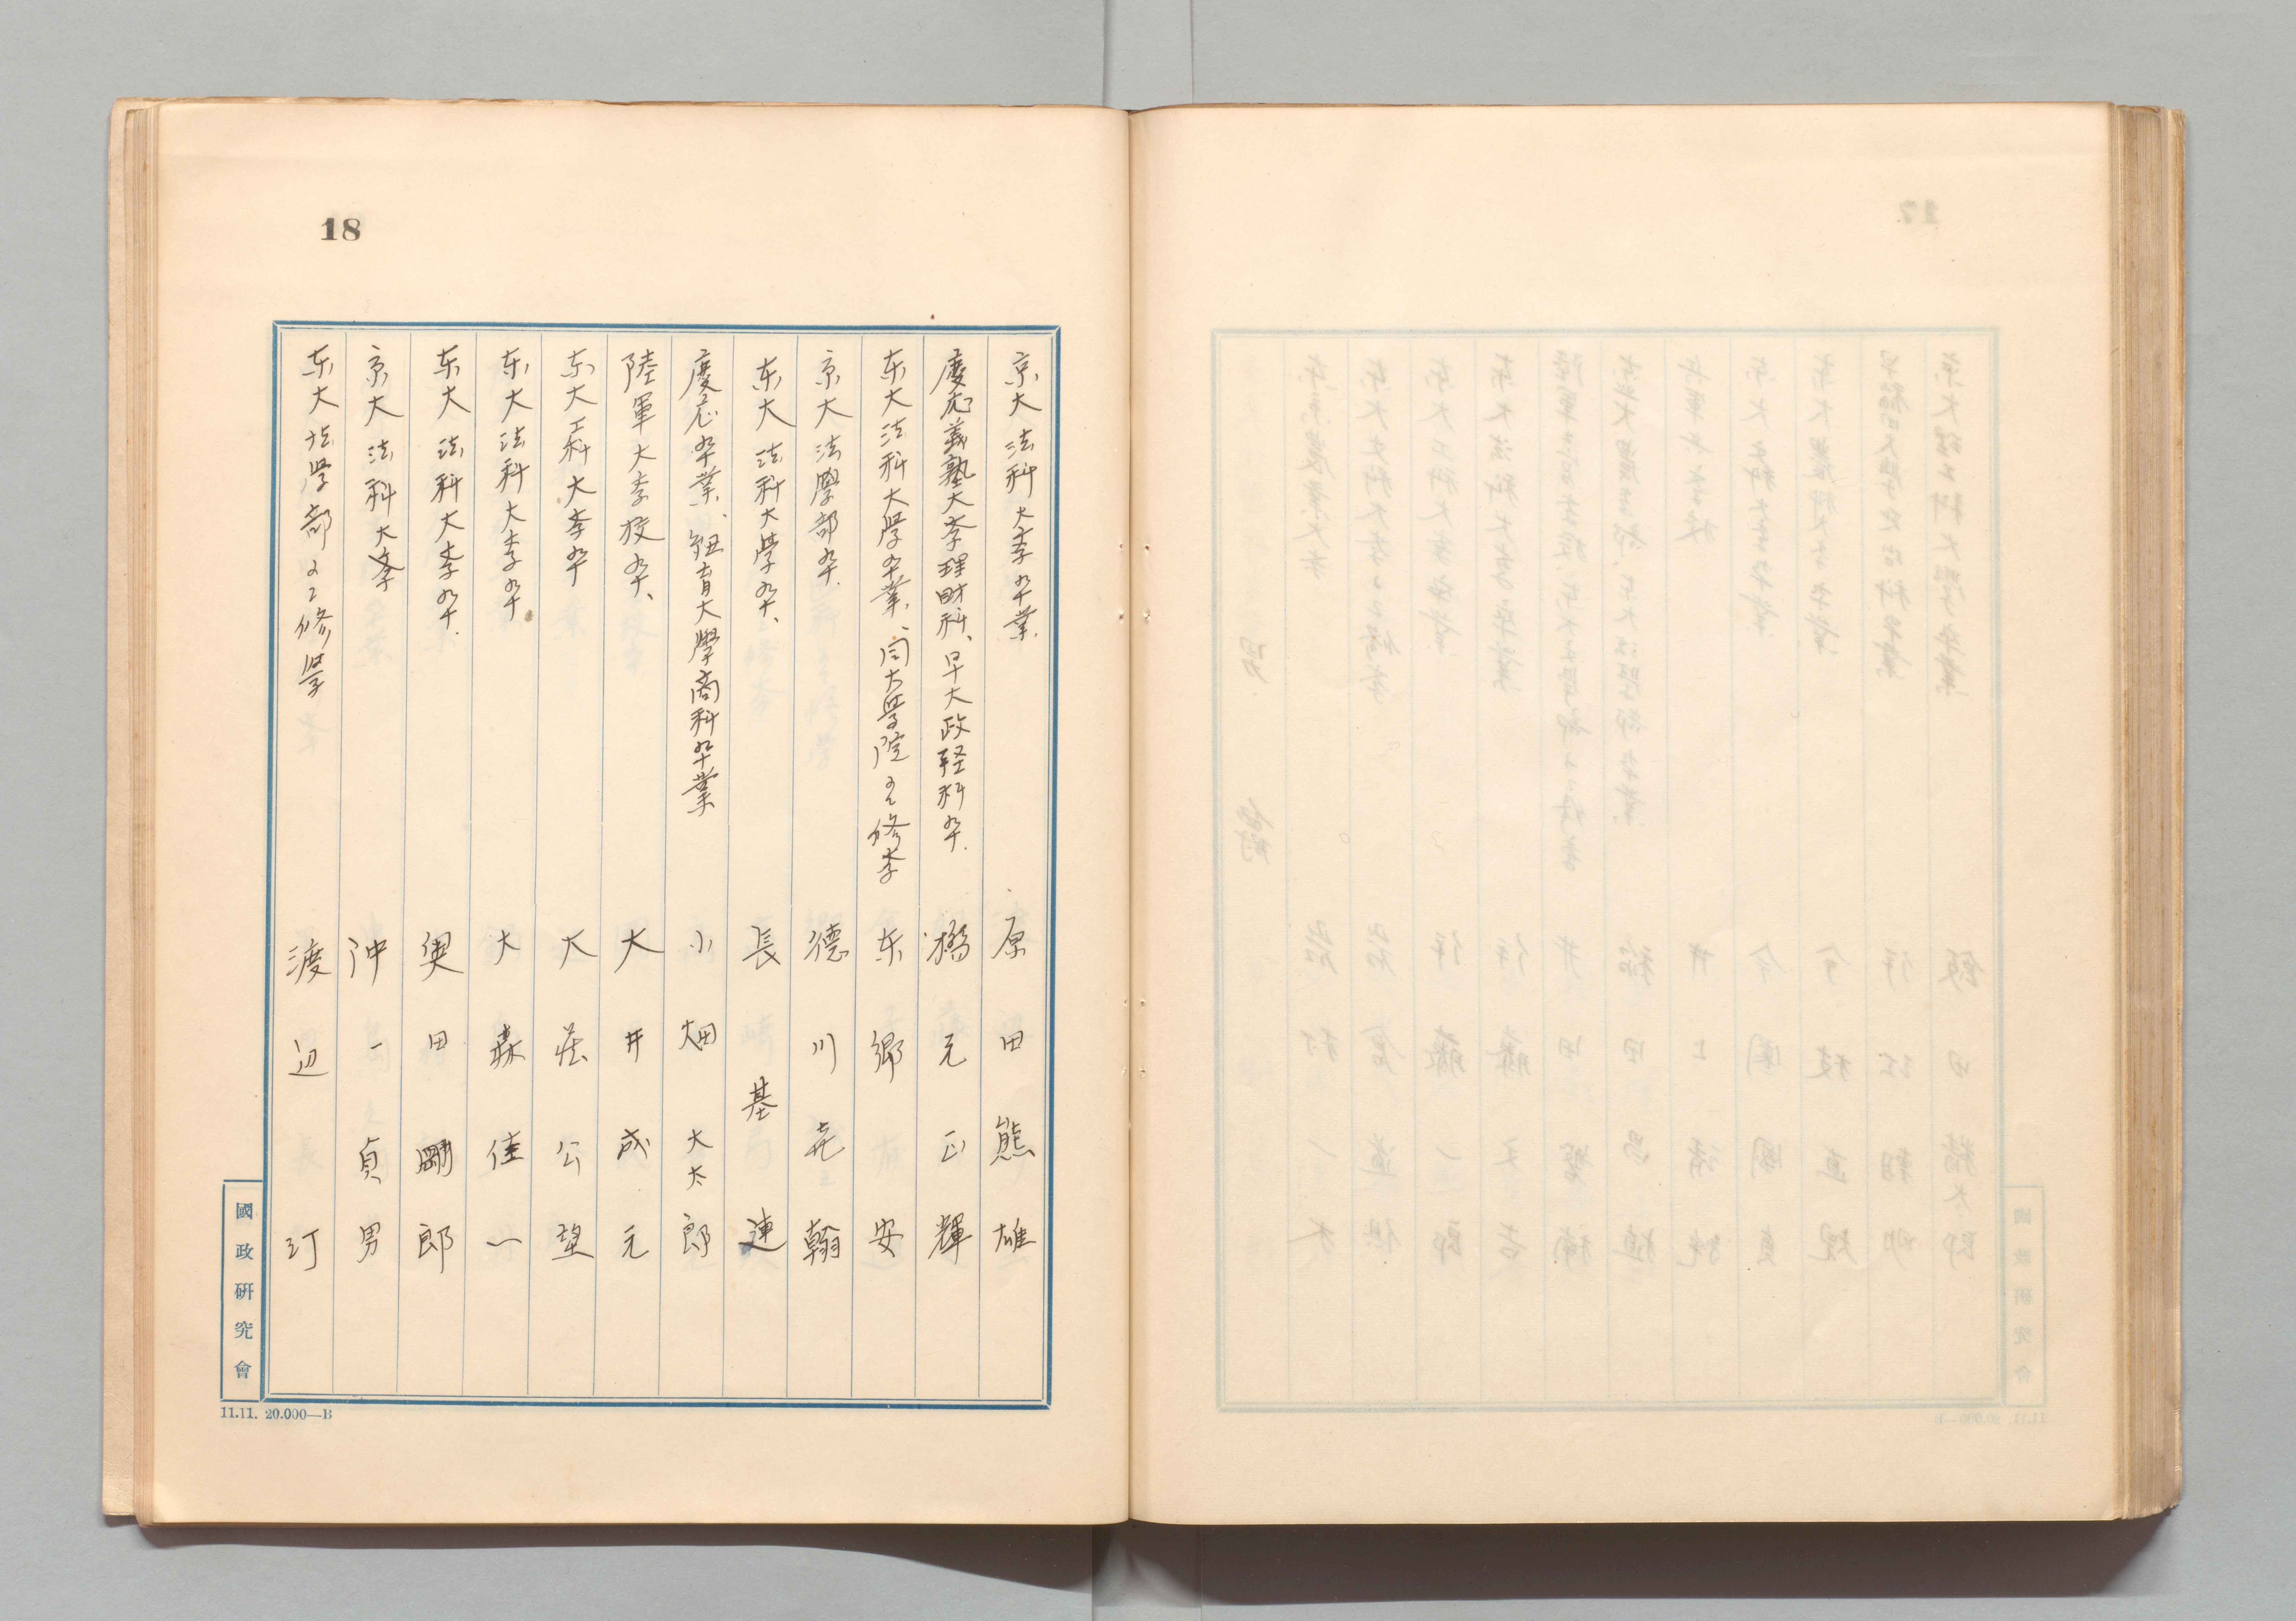 18
京大法科大学卒業. 原田熊雄
慶応義塾大学理財科、早大政経科卒. 橋元正輝
东大法科大學卒業、同大学院ニテ修学 东郷安
京大法學部卒. 徳川尭翰
东大法科大學卒、 長基連
慶応卒業、紐育大學商科卒業 小畑大太郎
陸軍大学校卒、 大井成元
东大工科大学卒 大荘公望
东大法科大学卒. 大森佳一
东大法科大学卒. 奥田剛郎
京大法科大学 沖一貞男
东大法學部ニテ修学 渡辺汀
國政研究會
11.11. 20.000—B